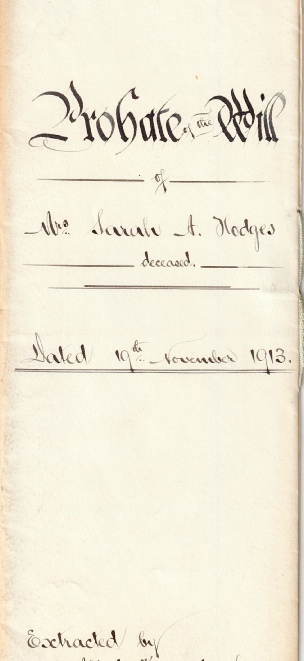 Probate of the Will
of
Mrs. Sarah A. Hodges
deceased.
Dated 19th November 1913.
Extracted by